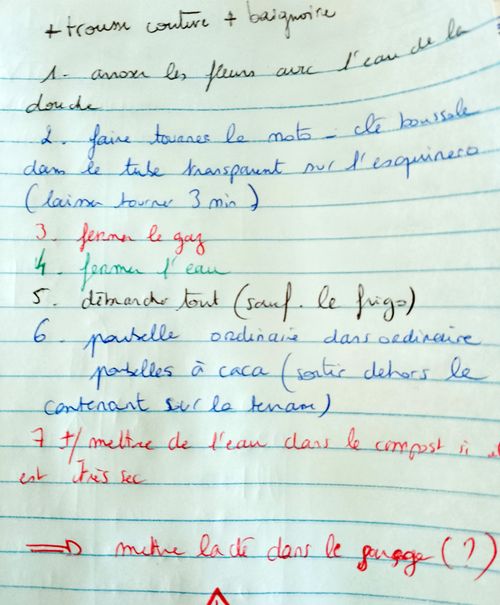 + trousse couture + baignoire
1. arroser les fleurs avec l'eau de la
douche
2. faire tourner la moto - clé boussole
dans le tube transparent sur l'esquinero
(laisser tourner 3 min)
3. fermer le gaz
4. fermer l'eau
5. débranche tout (sauf. le frigo)
6. poubelle ordinaire dans ordinaire
poubelles à caca (sortir dehors le
contenant sur la terrasse)
7 +/ mettre de l'eau dans le compost si
est très sec
⇒ mettre la clé dans le garage (?)